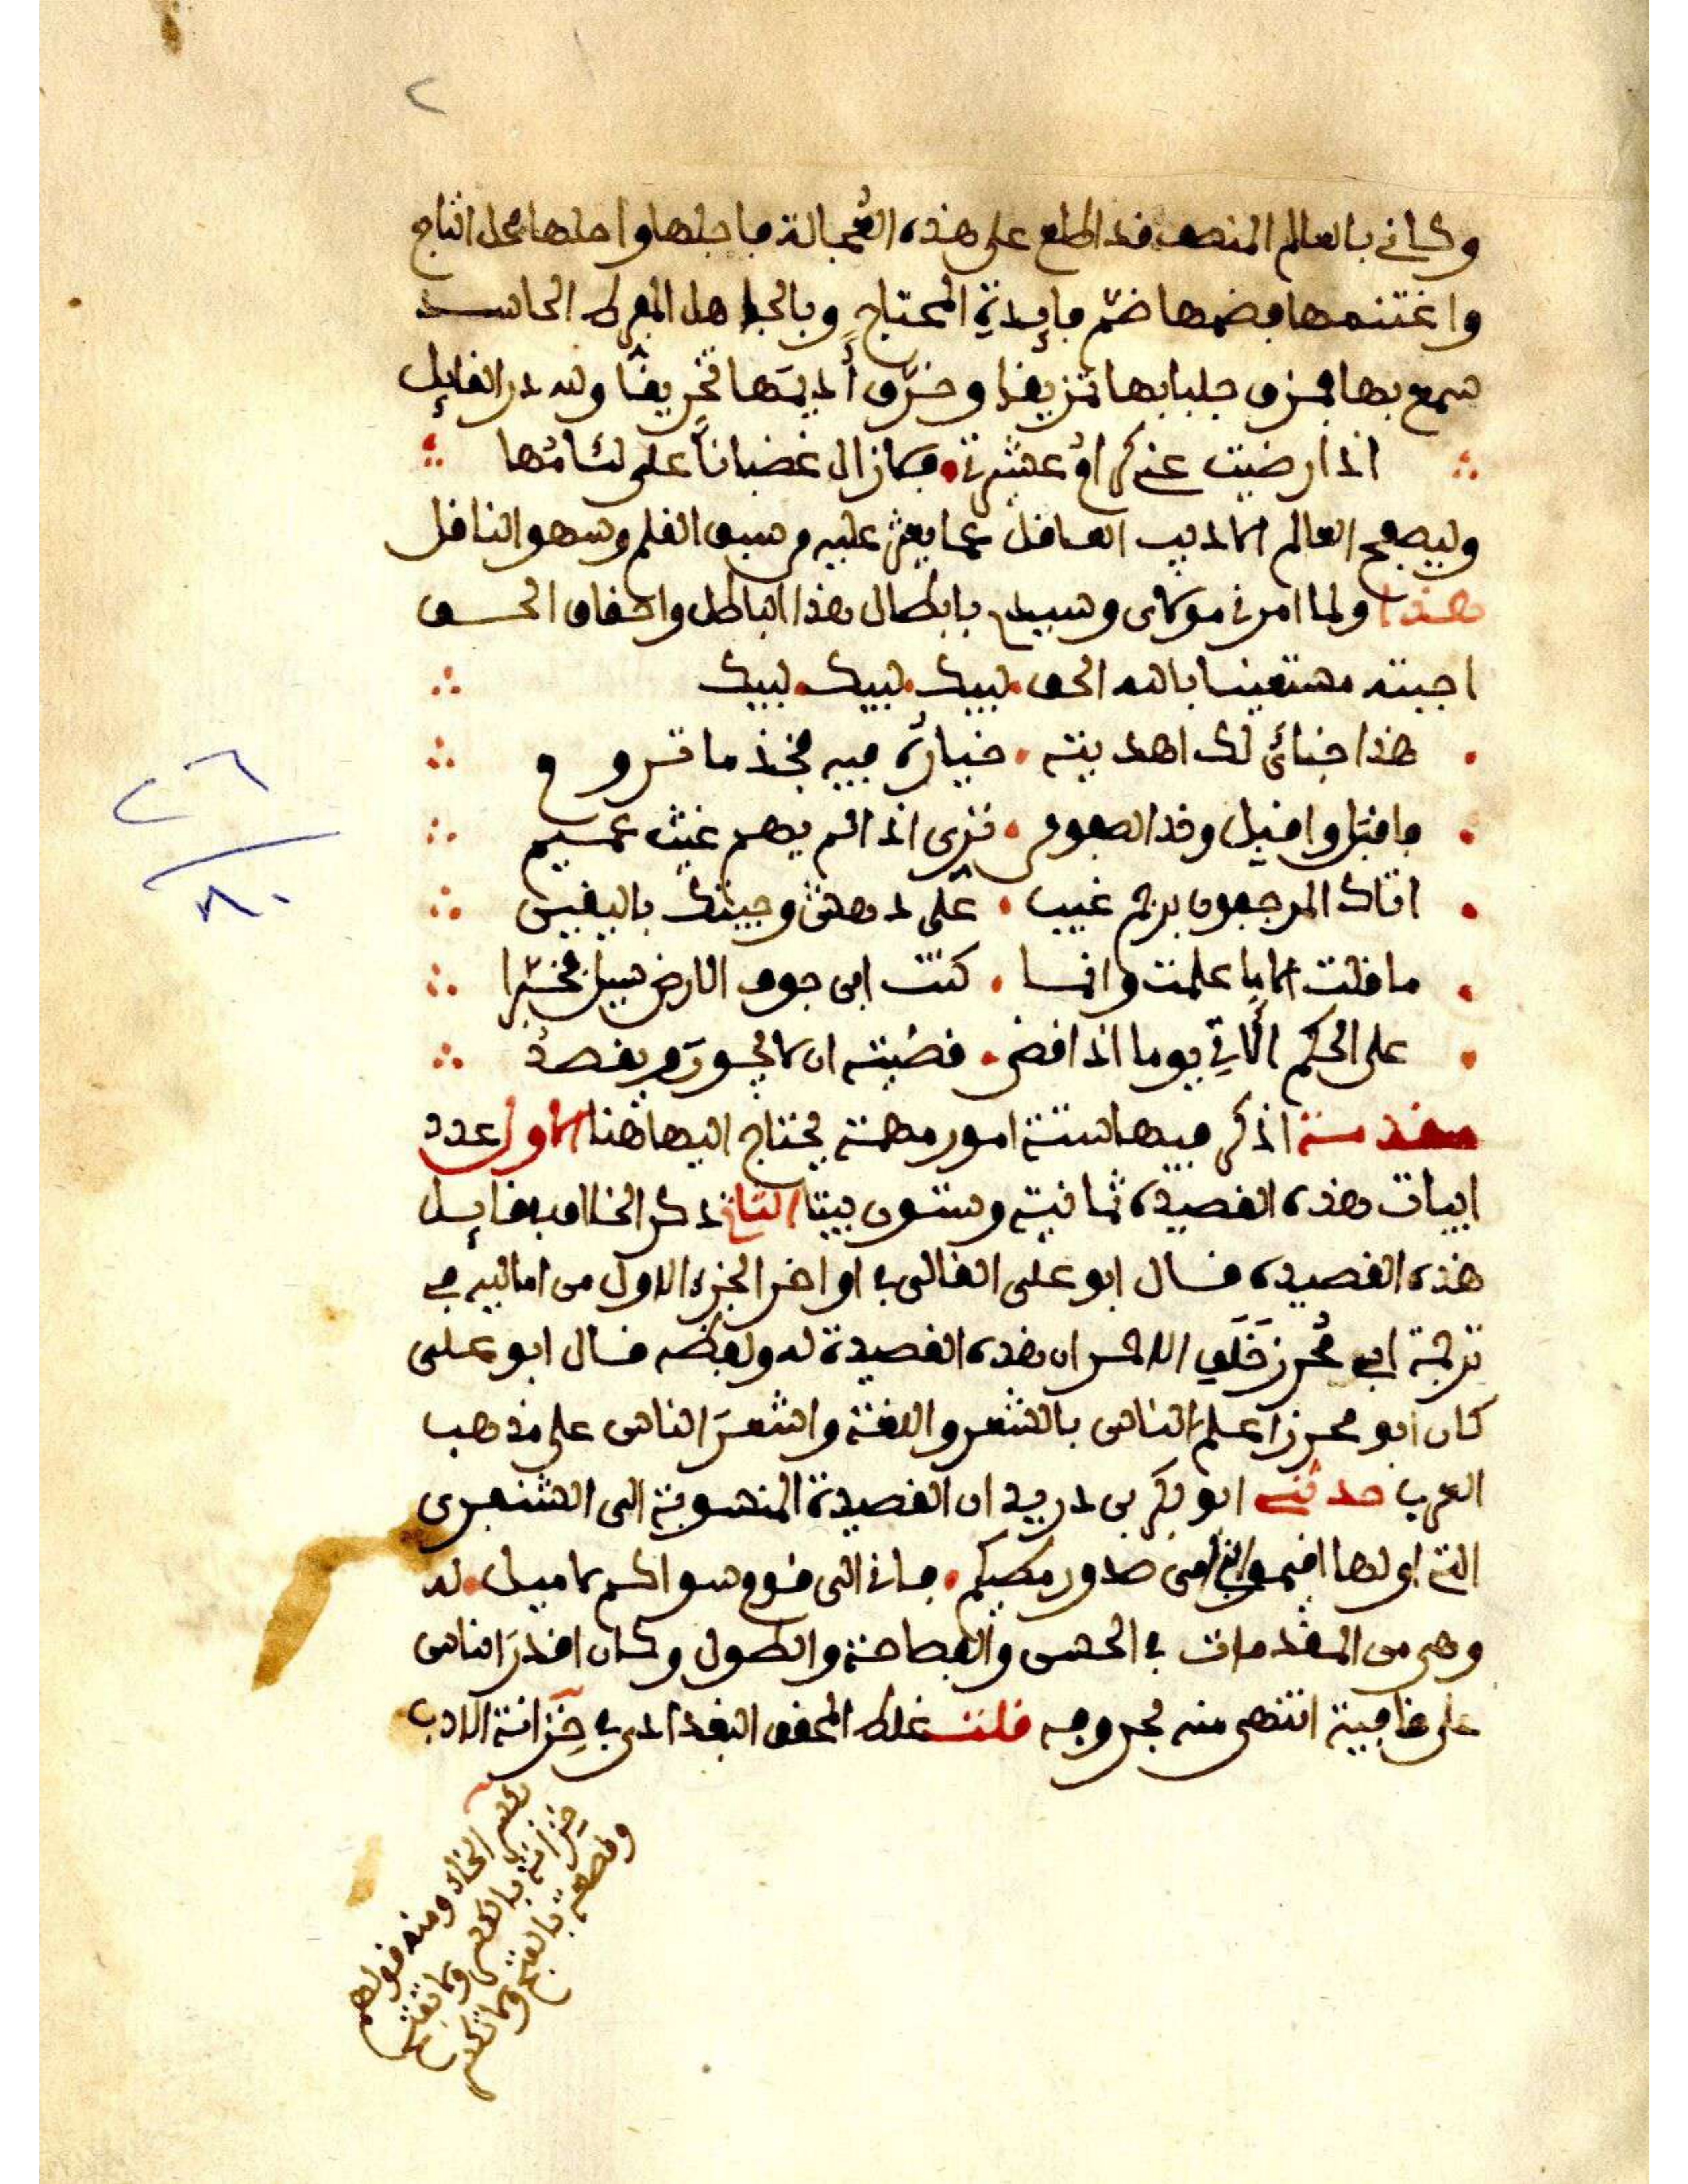 ٢
وكأني بالعالم المنصف قد اطلع على هذه العُجالة فاجلها واحلها محل التاج
واغتنمها فضمها ضمّ فايدةِ المحتاجِ وبالجاهل المفرط الحاسد
سمع بها فمزق جلبابها تمزيقا وخرّق أديمَها تخريقًا ولله در القايل
اذا رضيت عني كرام عشيرتي فما زال غضبانًا على لئامُها
وليصفح العالم الاديب العاقل عما يعثر عليه من سبق القلم وسهو الناقل
هذا ولما امرني مولاى وسيدي بابطال هذا الباطل واحقاق الحق
اجبته مستعينا بالله الحق لبيك لبيك لبيك
هذا جنائي لك اهديته خياره فيه فخذ ما تروق
فاقبل واقبل وفد الصفوم ترى اذا لم يهم غيث عميم
اتاك المرجفون برجم غيب على دهش وجيتك باليقين
ما قلت الا ما علمت وانما كنت ابن جوف الارض سيل مخبرا
على الحكم المأتي يوما اذا قضى قضيته ان لا يجور ويقصدُ
مقدمة اذكر فيها ستة امور مهمة يحتاج اليها هنا الاول عدد
ابيات هذه القصيدة ثمانية وستون بيتا الثاني ذكر الخلاف بقايل
هذه القصيدة قال ابو على القالى في اواخر الجزء الاول من اماليه في
ترجمة ابي مُحرز خَلَف الاحمر ان هذه القصيدة له ولفظه قال ابو على
كان ابو محرز اعلم الناس بالشعر واللغة واشعرَ الناس على مذهب
العرب حدثني ابو بكر بن دريد ان القصيدة المنسوبة الى الشنفرى
التي اولها اقيموا بني امى صدور مطيكم فاني الى قوم سواكم لاميل له
وهى من المقدمات في الحسن والفصاحة والطول وكان اقدرَ الناس
على قافية انتهى منه بحروفه قلت غلط المحقق البغدادى في خِزانة الادب
بكسر الخاء ومنه قولهم
خِزانة بالكسر ولا تفتح
وقصعة بالفتح ولا تكسر
٢٦
٨٠